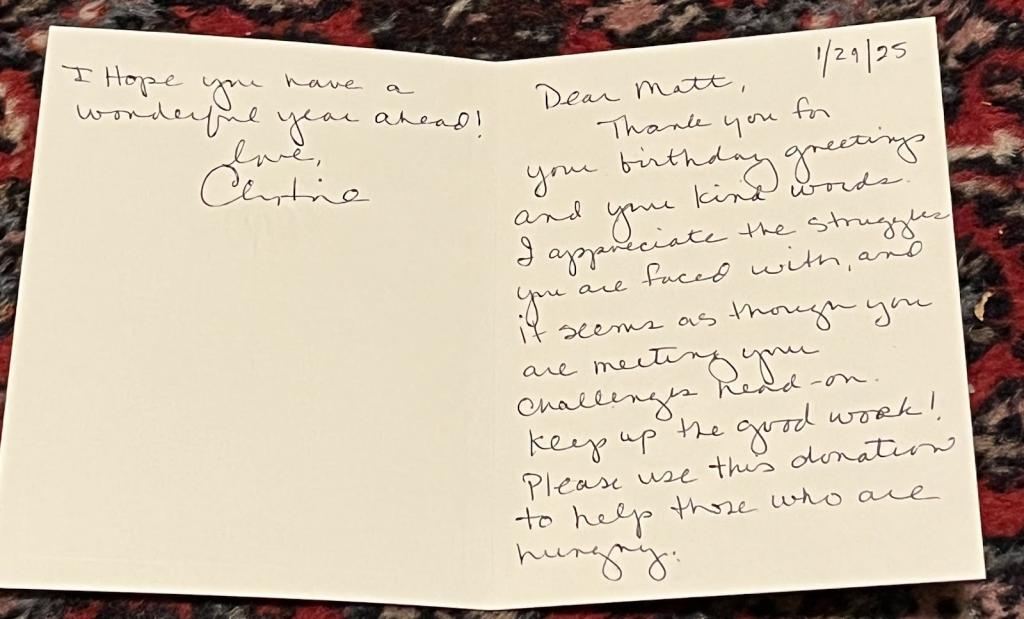 1/29/25
Dear Matt,
Thank you for
your birthday greetings
and your kind words.
I appreciate the struggles
you are faced with, and
it seems as though you
are meeting your
challenges head-on.
Keep up the good work!
Please use this donation
to help those who are
hungry.
I Hope you have a
wonderful year ahead!
Love,
Christine